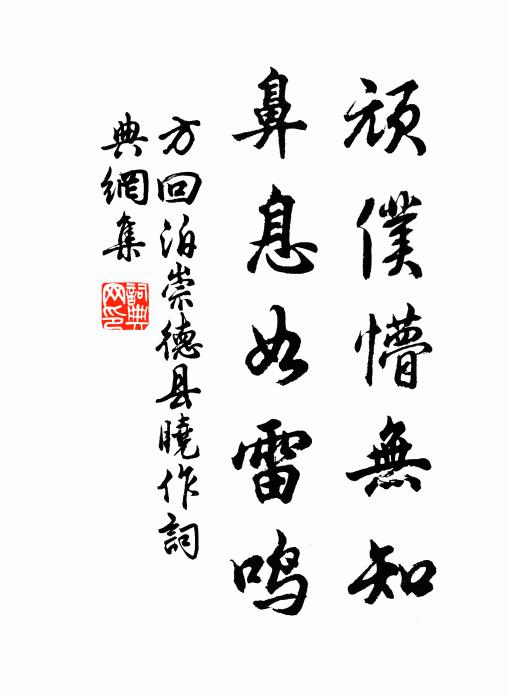 頑僕懵無知
鼻息如雷鸣
方回泊崇德县曉作詞
典網集
詞典网印